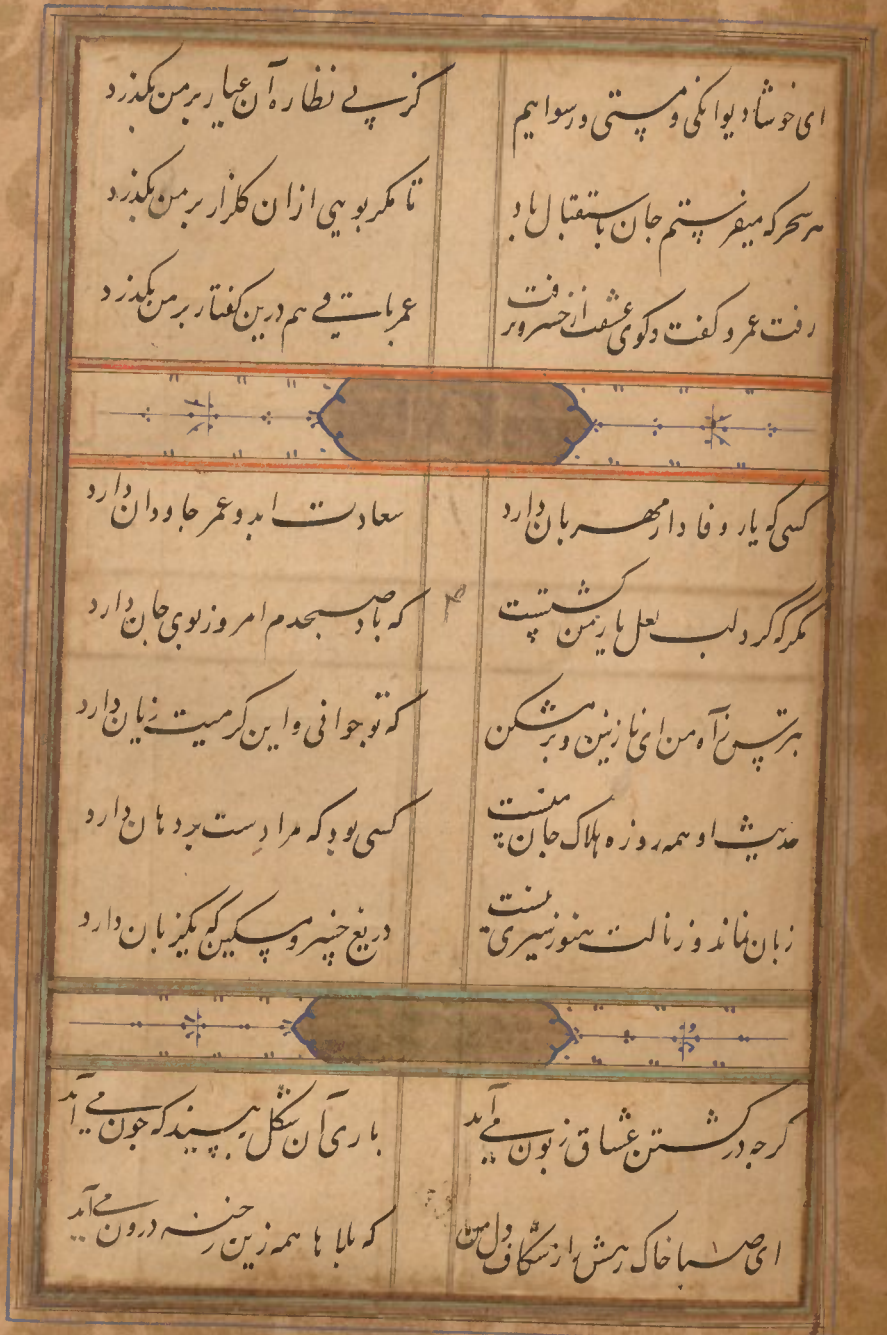 ای خوشا دیوانکی و مستی و رسواییم
کز پی نظاره آن عیار بر من بکذرد
هر سحر که میفرستم جان باستقبال باد
تا مکر بویی ازان کلزار بر من بکذرد
رفت عمر و کفت و کوی عشقت از خسرو
عمر باقی هم درین کفتار بر من بکذرد
کسی که یار وفادار مهربان دارد
سعادت ابد و عمر جاودان دارد
مکر که کرد لب لعل یار من کشتست
که باد صبحدم امروز بوی جان دارد
بترس ز آه من ای نازنین و بر مشکن
که تو جوانی و این کرمیت زیان دارد
حدیث او همه روزه هلاک جان منست
کسی بود که مرا دست بر دهان دارد
زبان نماند و ز نالت هنوز سیری نیست
دریغ خسرو مسکین که یکزبان دارد
کرچه در کشتن عشاق زبون می آید
باری آن شکل ببینید که چون می آید
ای صبا خاک رهش از شکاف دل من
که بلاها همه زین رخنه درون می آید